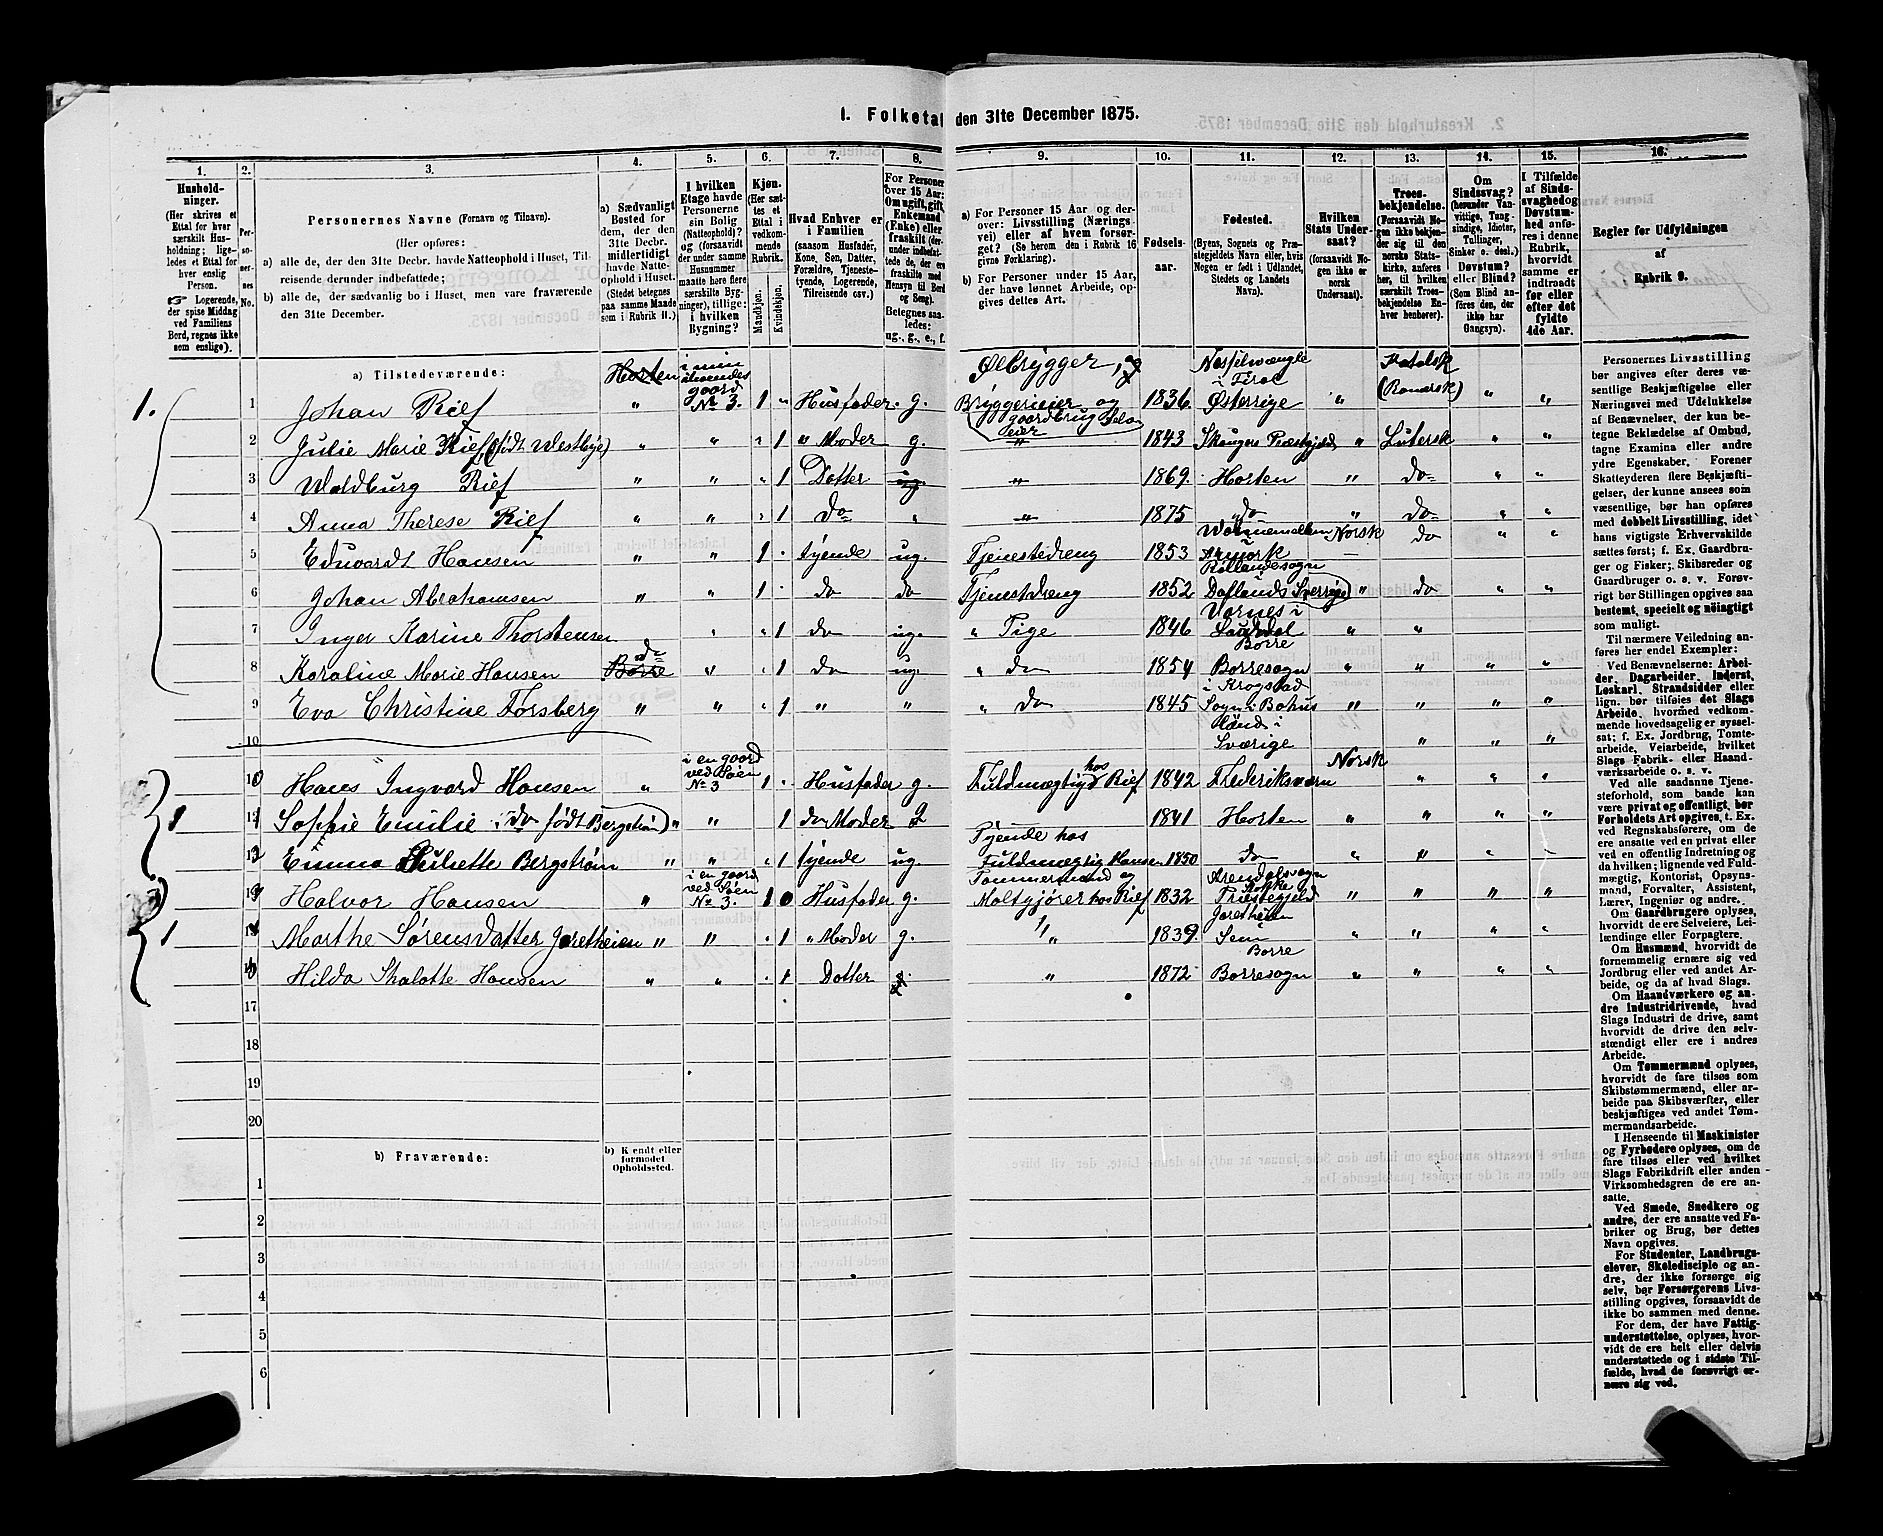 1. Folketal den 31te December 1875.
1. 2. 3. 4. 5. 6. 7. 8. 9. 10. 11. 12. 13. 14. 15. 16.
Hushold-
ninger.
(Her skrives et
Ettal for hver
særskilt Hus-
holdning; lige-
ledes et Ettal for
hver enslig
Person.
☞ Logerende,
der spise Middag
ved Familiens
Bord, regnes ikke
som enslige).
Per-
so-
ner-
nes
No.
Personernes Navne (Fornavn og Tilnavn).
(Her opføres:
a) alle de, der den 31te Decbr. havde Natteophold i Huset, Til-
reisende derunder indbefattede;
b) alle de, der sædvanlig bo i Huset, men vare fraværende
den 31te December.
a) Sædvanligt
Bosted for
dem, der den
31te Decbr.
midlertidigt
havde Natte-
ophold i Huset.
(Stedet betegnes
paa samme Maade
som i Rubrik 11.)
I hvilken
Etage havde
Personerne
sin Bolig
(Natteophold)?
og (forsaavidt
der under samme
Husnummer
maatte høre flere
særskilte Byg-
ninger), tillige:
i hvilken
Bygning?
Kjøn.
(Her sæt-
tes et
Ettal i
vedkom-
mende
Rubrik.
Mandkjøn.
Kvindekjøn.
Hvad Enhver er
i Familien
(saasom Husfader,
Kone, Søn, Datter,
Forældre, Tjeneste-
tyende, Logerende,
Tilreisende osv.)
For Personer
over 15 Aar:
Om ugift, gift,
Enkemand
(Enke) eller
fraskilt (der-
under indbefat-
tede de, der ere
fraskilte med
Hensyn til Bord
og Seng).
Betegnes saa-
ledes:
ug., g., e., f.
a) For Personer 15 Aar og der-
over: Livsstilling (Nærings-
vei) eller af hvem forsør-
get? (Se herom den i Rubrik 16
givne Forklaring).
b) For Personer under 15 Aar,
der have lønnet Arbeide, op-
gives dettes Art.
Fødsels-
aar.
Fødested.
(Byens, Sognets og Præ-
stegjeldets Navn eller, hvis
Nogen er født i Udlandet,
Stedets og Landets
Navn).
Hvilken
Stats Under-
saat?
(forsaavidt No-
gen ikke er
norsk
Undersaat).
Troes-
bekjendelse.
(Forsaavidt No-
gen ikke bekjen-
der sig til den
norske Stats-
kirke, anføres
her, til hvilken
særskilt Troes-
bekjendelse En-
hver henhører).
Om
Sindssvag?
(herunder Van-
vittige, Tung-
sindige, Idioter,
Tullinger,
Sinker o. desl.)
Døvstum?
eller Blind?
(Som Blind an-
føres den, der
ikke har
Gangsyn).
I Tilfælde
af Sinds-
svaghed og
Døvstum-
hed anfø-
res i denne
Rubrik,
hvorvidt
samme er
indtraadt
før eller
efter det
fyldte
4de Aar.
Regler for Udfyldningen
af
Rubrik 9.
a) Tilstedeværende:
1. 1 Johan Rief Horten " i min iboendes gaard No 3. 1 " Husfader. g. Ølbrygger, og Bryggerieier og gaardbrug Selveier 1836. Nesselwængle i Tirol Østerrige " Katolsk (Romersk) " "
2 Julie Marie Rief (født Westbye) " " " 1 " Moder g. " 1843 Skauger Præstgjeld " Lutersk " "
3 Waldburg Rief " " " 1 Datter ug. " 1869. Horten " do " "
4 Anna Therese Rief " " " 1 do " " 1875 do " do " "
5 Eduardt Hansen " " 1 " tyende ug. Tjenestedreng 1853 Norsk do " "
6 Johan Abrahamsen " " 1 " do do Tjenestdreng 1852 Røllandesogn Dalslands Sverrige " do " "
7 Inger Karine Thorstensen " " " 1 do ug. " Pige 1846 Varnes i " "
8 Karoline Marie Hansen Borre do " " 1 do ug. " do 1854 Borre Borresogn " " " "
9 Eva Christine Forsberg " " " 1 " " " do 1845 i Krogstad Sogn i Bohus länd i Sværige " " " "
10
10 Hans Ingvard Hansen " i en gaard ved Søen No 3 1 " Husfader g. Fuldmægtig hos Rief 1842 Frederiksværn Norsk " " "
1 11 Soffie Emilie do født Bergstrøm) " " 1 do Moder g 1841 Horten " " " "
12 Emma Juliette Bergstrøm " " " 1 tyende ug. Tyende hos Fuldmægtig Hansen 1850 do " " " "
13 Halvor Hansen " i en gaard ved Søen No 3. 1 0 Husfader g. Tømmermand og Maltgjører hos Rief 1832 " " " "
1 14 Marthe Sørensdatter Jaretheien " " " 1 " Moder g. " 1839. Sem " " " "
15 Hilda Skalotte Hansen " " " 1 Datter " 1872 Borre Borresogn " " " "
17
18
19
20
b) Fraværende:
b) Kendt eller
formodet
Opholdssted.
1
2
3
4
5
6
Personernes Livsstilling
bør angives efter deres væ-
sentlige Beskjæftigelse eller
Næringsvei med Udelukkelse
af Benævnelser, der kun be-
tegne Beklædelse af Ombud,
tagne Examina eller andre
ydre Egenskaber. Forener
Skatteyderen flere Beskjæfti-
gelser, der kunne ansees som
væsentlige, bør han opføres
med dobbelt Livsstilling, idet
hans vigtigste Erhvervskilde
sættes først; f. Ex. Gaardbru-
ger og Fisker; Skibsreder og
Gaardbruger o. s. v. Forøv-
rigt bør Stillingen opgives saa
bestemt, specielt og nøiagtigt
som muligt.
Til nærmere Veiledning an-
føres her endel Exempler:
Ved Benævnelserne: Arbei-
der, Dagarbeider, Inderst,
Løskarl, Strandsidder eller
lign. bør tilføies det Slags
Arbeide, hvormed vedkom-
mende hovedsagelig er syssel-
sat; f. Ex. Jordbrug, Tomte-
arbeide, Veiarbeide, hvilket
Slags Fabrik- eller Haand-
værksarbeide o. s. v.
Ved alle saadanne Tjene-
steforhold, som baade kan
være privat og offentligt, bør
Forholdets Art opgives, t. Ex.
ved Regnskabsførere, om de
ere ansatte ved en privat eller
ved en offentlig Indretning og
da hvilken; lignende ved Fuld-
mægtig, Kontorist, Opsyns-
mand, Forvalter, Assistent,
Lærer, Ingeniør og andre.
Om Gaardbrugere oplyses,
hvorvidt de ere Selveiere, Lei-
lændinge eller Forpagtere.
Om Husmænd, hvorvidt de
fornemmelig ernære sig ved
Jordbrug eller ved andet Ar-
beide, og da af hvad Slags.
Om Haandværkere og an-
dre Industridrivende, hvad
Slags Industri de drive, samt
hvorvidt de drive den selv-
stændigt eller ere i andres
Arbeide.
Om Tømmermænd oplyses,
hvorvidt de fare tilsøs som
Skibstømmermænd, eller ar-
beide paa Skibsværfter, eller
beskjæftiges ved andet Tøm-
mermandsarbeide.
I Henseende til Maskinister
og Fyrbødere oplyses, om de
fare tilsøs eller ved hvilket
Slags Fabrikdrift eller anden
Virksomhedsgren de ere an-
satte.
Ved Smede, Snedkere og
andre, der ere ansatte ved Fa-
briker og Brug, bør dettes
Navn opgives.
For Studenter, Landbrugs-
elever, Skoledisciple og an-
dre, der ikke forsørge sig
selv, bør Forsørgerens Livs-
stilling opgives, forsaavidt de
ikke bo sammen med denne.
For dem, der have Fattig-
understøttelse, oplyses, hvor-
vidt de ere helt eller delvis
understøttede og i sidste Til-
fælde, hvad de forøvrigt er-
nære sig ved.